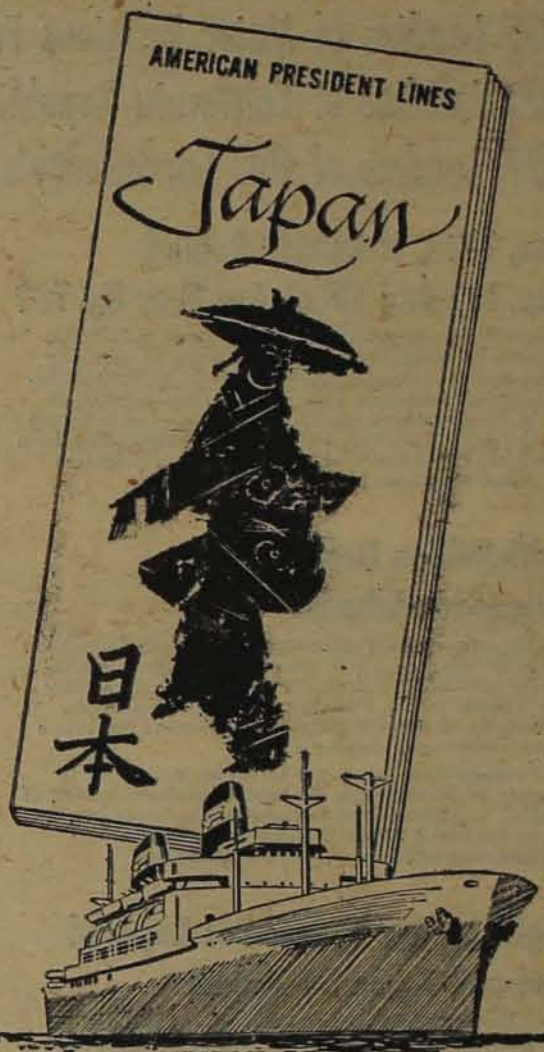 AMERICAN PRESIDENT LINES
Japan
日
本